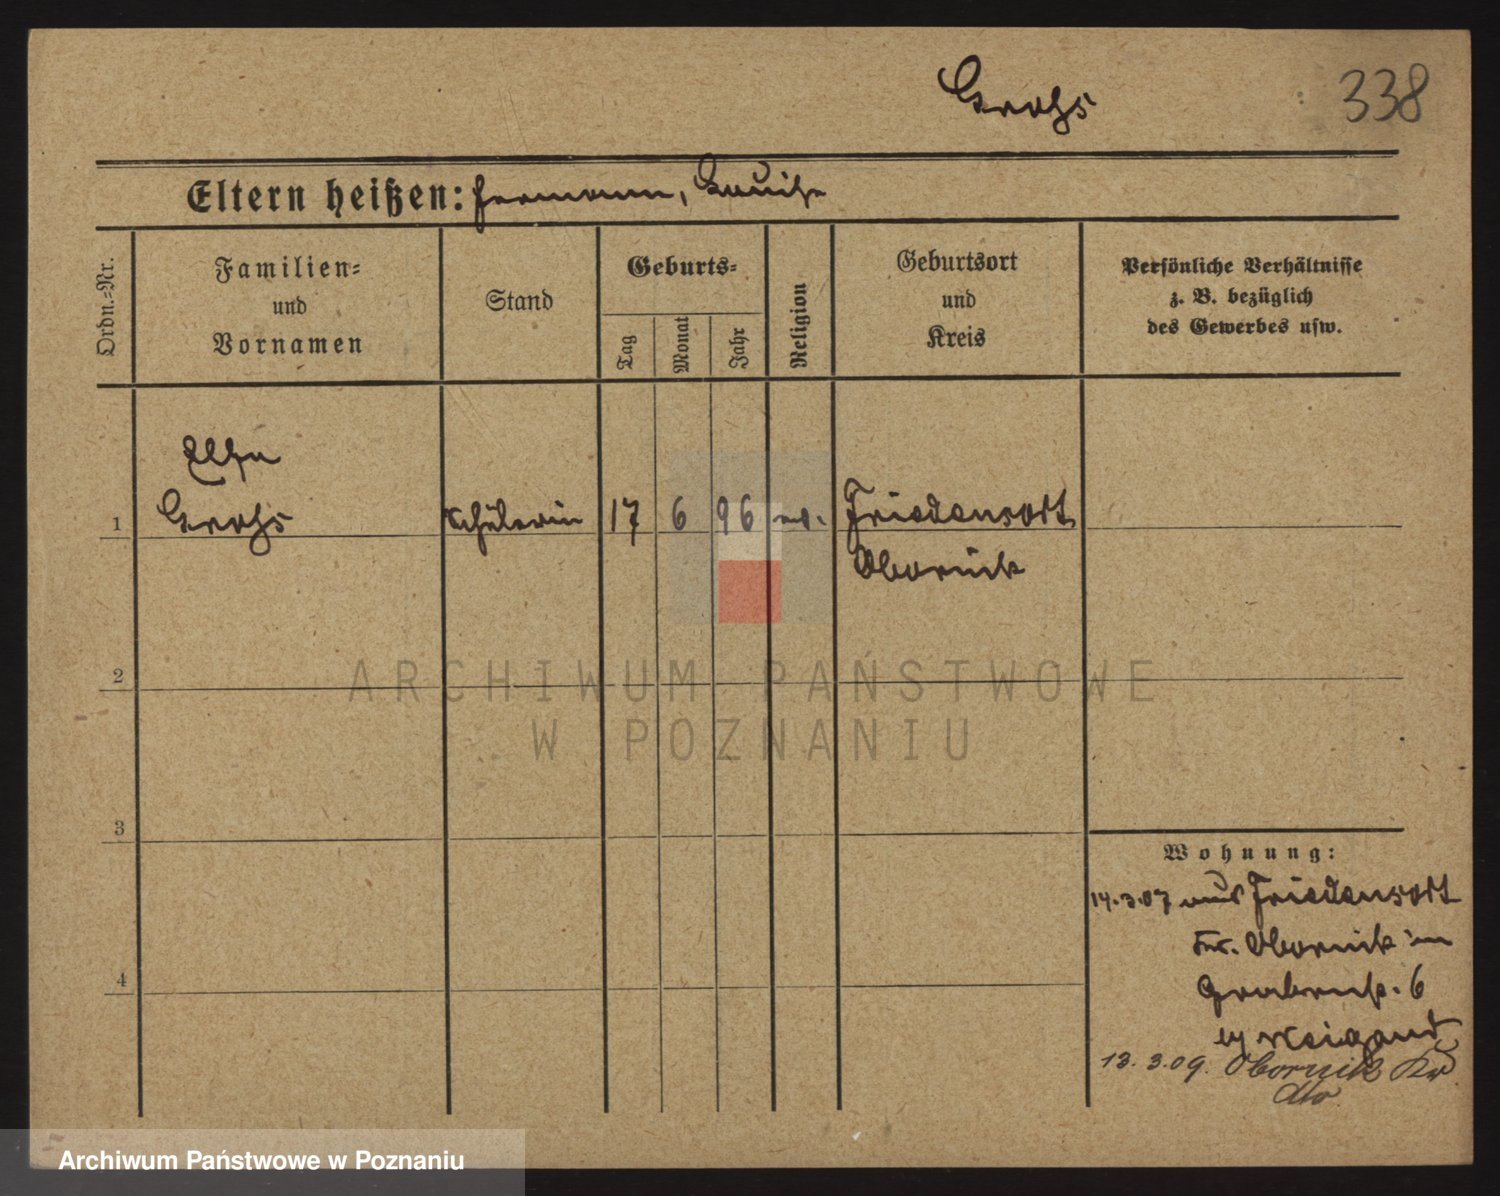 Krohs
338
Eltern heißen: Hermann, Louise
Ordn.-Nr.
Familien-
und
Vornamen
Stand
Geburts-
Tag
Monat
Jahr
Religion
Geburtsort
und
Kreis
Persönliche Verhältnisse
z. B. bezüglich
des Gewerbes usw.
1
Krohs
Schülerin
17
6
96
ev.
Friedensort
Obornik
2
3
4
Wohnung:
14.3.07 aus Friedensort
Obornik in
6
13.3.09. Obornik
dto
ARCHIWUM PAŃSTWOWE
W POZNANIU
Archiwum Państwowe w Poznaniu